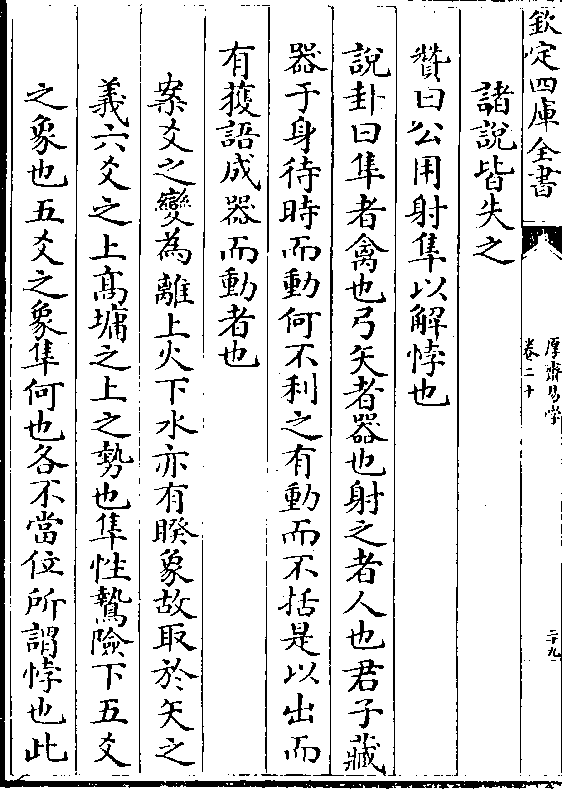 欽定四庫全書
厚齋易學
卷二十
二十九
諸說皆失之
贊曰公用射隼以解悖也
說卦曰隼者禽也弓矢者器也射之者人也君子藏
器于身待時而動何不利之有動而不括是以出而
有獲語成器而動者也
案爻之變為離上火下水亦有睽象故取於矢之
義六爻之上高墉之上之勢也隼性鷙險下五爻
之象也五爻之象隼何也各不當位所謂悖也此